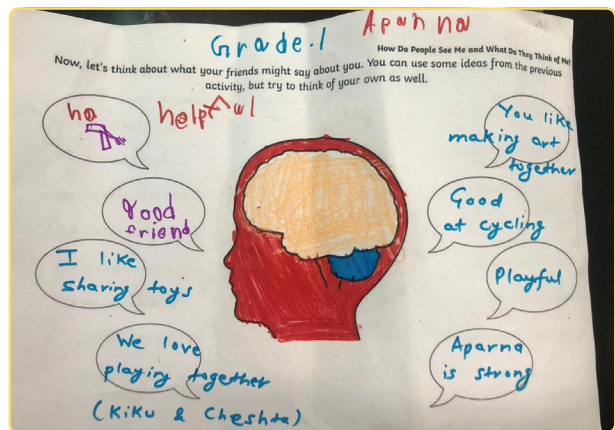 Grade.1
Aparna
How Do People See Me and What Do They Think of Me?
Now, let's think about what your friends might say about you. You can use some ideas from the previous
activity, but try to think of your own as well.
ha
helpful
good
friend
I like
sharing toys
We love
playing together
(Kiku & Cheshta)
You like
making art
together
Good
at cycling
Playful
Aparna
is strong